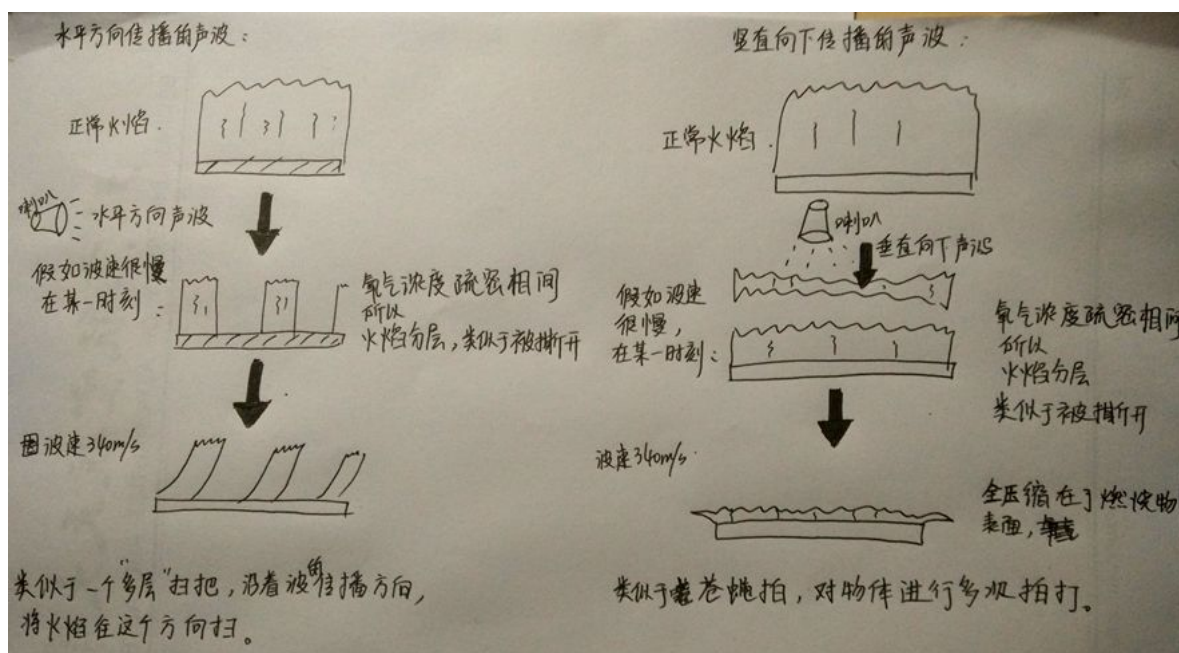 水平方向传播的声波：
正常火焰.
喇叭
水平方向声波
假如波速很慢
在某一时刻：
氧气浓度疏密相间
所以
火焰分层，类似于被撕开
波速340m/s
类似于一个"多层"扫把，沿着波的传播方向，
将火焰在这个方向扫。
竖直向下传播的声波：
正常火焰.
喇叭
垂直向下声波
假如波速
很慢，
在某一时刻：
氧气浓度疏密相间
所以
火焰分层
类似于被撕开
波速340m/s.
全压缩在了燃烧物
表面，
类似于苍蝇拍，对物体进行多次拍打。